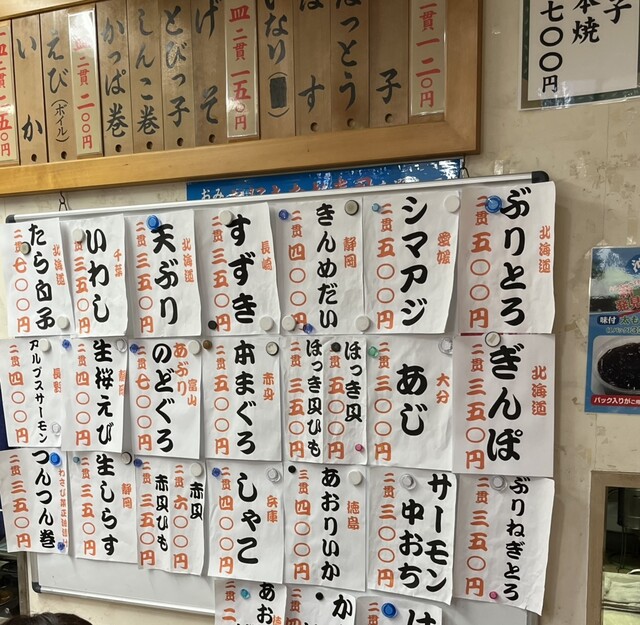 子
本焼
七〇〇円
一貫一二〇円
子
ほっとう
はす
いなり
四
二貫一五〇円
げそ
とびっ子
しんこ巻
かっぱ巻
二貫二〇〇円
えび（ボイル）
いか
北海道
ぶりとろ
二貫三五〇円
愛媛
シマアジ
二貫三五〇円
静岡
きんめだい
二貫四〇〇円
長崎
すずき
二貫三五〇円
天ぶり
二貫三五〇円
千葉
いわし
二貫三五〇円
北海道
たら白子
二貫七〇〇円
北海道
ぎんぽ
二貫三五〇円
大分
あじ
二貫三〇〇円
ほっき貝
二貫三五〇円
ほっき貝ひも
二貫三五〇円
赤身
本まぐろ
二貫四〇〇円
富山
あぶり
のどぐろ
二貫七〇〇円
静岡
生桜えび
二貫四〇〇円
長野
アルプスサーモン
二貫四〇〇円
ぶりねぎとろ
二貫三五〇円
サーモン中おち
二貫三〇〇円
徳島
あおりいか
二貫三五〇円
兵庫
しゃこ
二貫四〇〇円
赤貝
二貫六〇〇円
赤貝ひも
二貫三五〇円
静岡
生しらす
二貫三五〇円
つんつん巻
二貫三五〇円
は
か
あお
味付
パック入りが